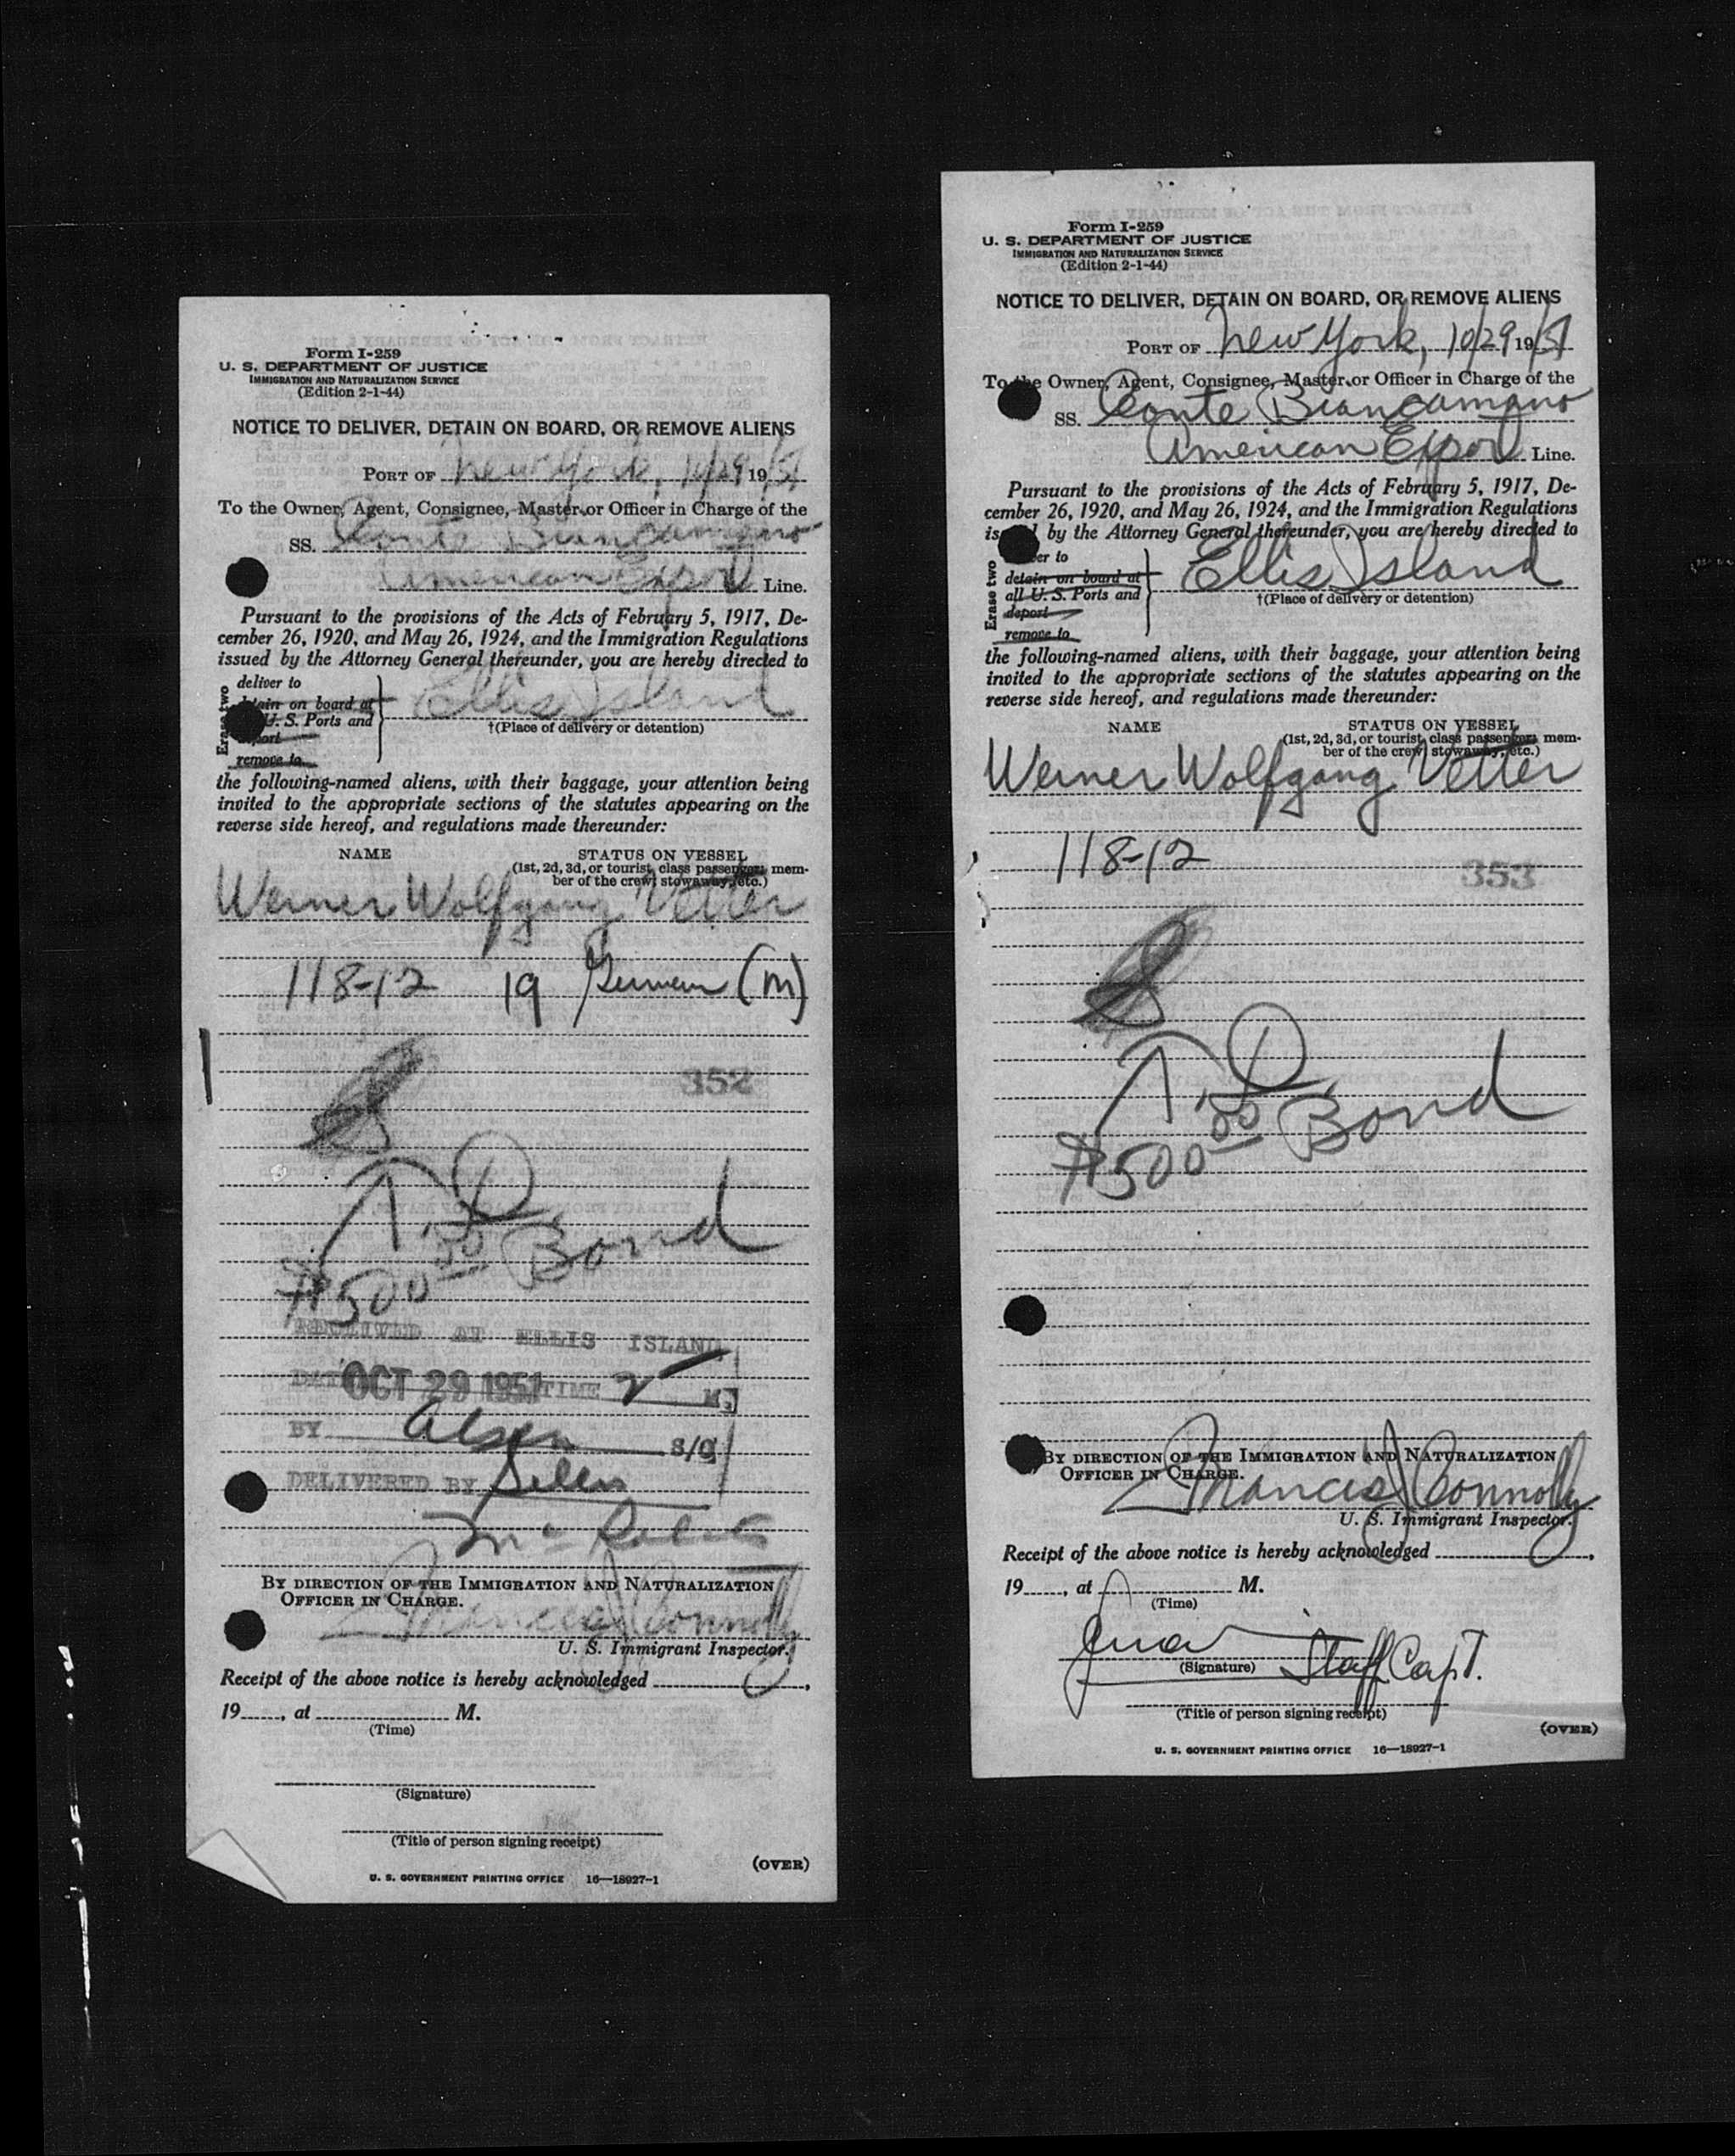 Form I-259
U. S. DEPARTMENT OF JUSTICE
IMMIGRATION AND NATURALIZATION SERVICE
(Edition 2-1-44)
NOTICE TO DELIVER, DETAIN ON BOARD, OR REMOVE ALIENS
PORT OF New York, 10/29 19/51
To the Owner, Agent, Consignee, Master or Officer in Charge of the
SS. Conte Biancamano
American Export Line.
Pursuant to the provisions of the Acts of February 5, 1917, De-
cember 26, 1920, and May 26, 1924, and the Immigration Regulations
issued by the Attorney General thereunder, you are hereby directed to
Erase two
deliver to
detain on board at
U. S. Ports and
deport
remove to
Ellis Island
†(Place of delivery or detention)
the following-named aliens, with their baggage, your attention being
invited to the appropriate sections of the statutes appearing on the
reverse side hereof, and regulations made thereunder:
NAME STATUS ON VESSEL
(1st, 2d, 3d, or tourist, class passenger; mem-
ber of the crew; stowaway, etc.)
Werner Wolfgang Vetter
118-12 19 German (M)
352
$500 00 Bond
RECEIVED AT ELLIS ISLAND
DATE OCT 29 1951 TIME 2 M.
BY S/O
DELIVERED BY
BY DIRECTION OF THE IMMIGRATION AND NATURALIZATION
OFFICER IN CHARGE.
Francis J Connolly
U. S. Immigrant Inspector.
Receipt of the above notice is hereby acknowledged
19 , at M.
(Time)
(Signature)
(Title of person signing receipt)
(OVER)
U. S. GOVERNMENT PRINTING OFFICE 16—18927-1
Form I-259
U. S. DEPARTMENT OF JUSTICE
IMMIGRATION AND NATURALIZATION SERVICE
(Edition 2-1-44)
NOTICE TO DELIVER, DETAIN ON BOARD, OR REMOVE ALIENS
PORT OF New York, 10/29 19/51
To the Owner, Agent, Consignee, Master or Officer in Charge of the
SS. Conte Biancamano
American Export Line.
Pursuant to the provisions of the Acts of February 5, 1917, De-
cember 26, 1920, and May 26, 1924, and the Immigration Regulations
by the Attorney General thereunder, you are hereby directed to
Erase two
detain on board at
all U. S. Ports and
deport
remove to
Ellis Island
†(Place of delivery or detention)
the following-named aliens, with their baggage, your attention being
invited to the appropriate sections of the statutes appearing on the
reverse side hereof, and regulations made thereunder:
NAME STATUS ON VESSEL
(1st, 2d, 3d, or tourist, class passenger; mem-
ber of the crew; stowaway, etc.)
Werner Wolfgang Vetter
118-12
353
$500 00 Bond
BY DIRECTION OF THE IMMIGRATION AND NATURALIZATION
OFFICER IN CHARGE.
Francis J Connolly
U. S. Immigrant Inspector.
Receipt of the above notice is hereby acknowledged
19 , at M.
(Time)
(Signature) Staff Capt.
(Title of person signing receipt)
(OVER)
U. S. GOVERNMENT PRINTING OFFICE 16—18927-1